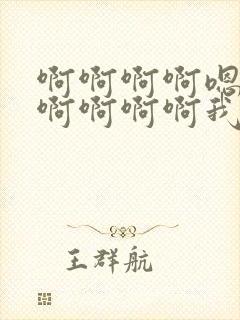 啊啊啊啊嗯
啊啊啊啊我
王群航